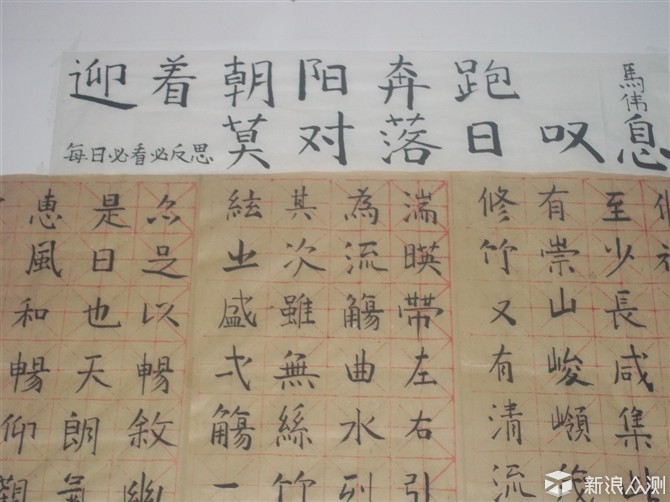 迎着朝阳奔跑
莫对落日叹息
每日必看必反思
馬伟
至少長咸集
有崇山峻嶺
修竹又有清流
湍暎帶左右引
為流觴曲水列
其次雖無絲竹
絃之盛弌觴一
亦足以暢敘幽
是日也天朗氣
惠風和暢仰觀
新浪众测